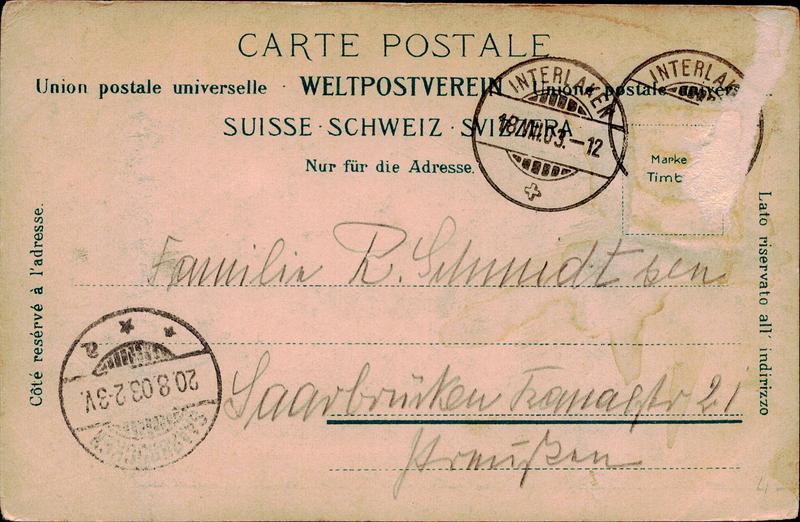 CARTE POSTALE
Union postale universelle · WELTPOSTVEREIN · Unione postale univer
SUISSE · SCHWEIZ · SVIZZERA
Nur für die Adresse.
INTERLAKEN
18.VIII.03.-12
INTERLAK
Marke
Timb
Côté resérvé à l'adresse.
Lato riservato all' indirizzo
Familie R. Schmidt sen
Saarbrücken Kanalstr 21
Preußen
a
20.8.03.2-3V.
SAARBRÜCKEN